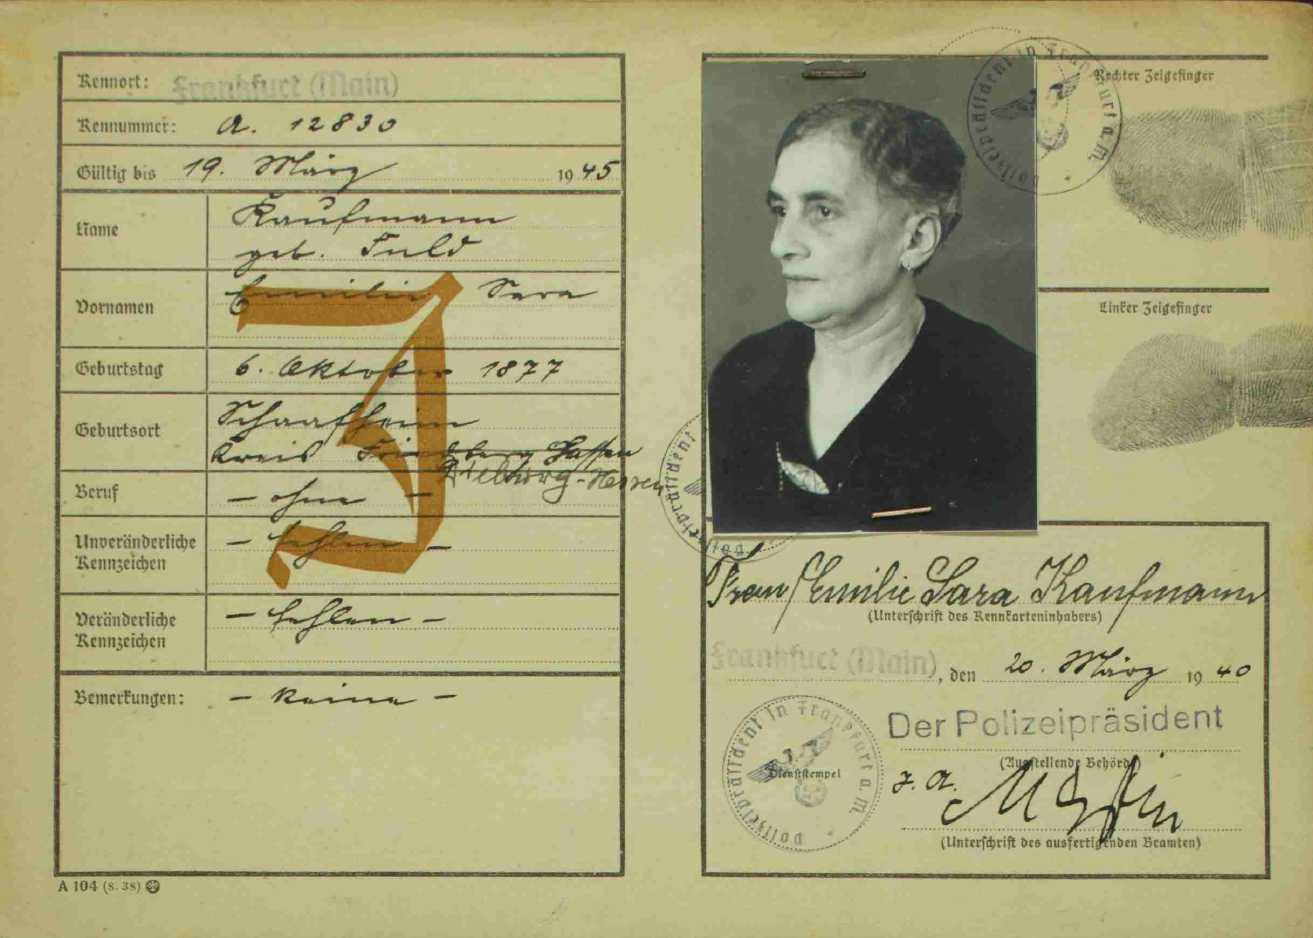 Kennort: Frankfurt (Main)
Kennummer: A. 12830
Gültig bis 19. März 1945
Name Kaufmann
geb. Fuld
Vornamen Emilie Sara
Geburtstag 6. Oktober 1877
Geburtsort Schaafheim
Kreis Friedberg Hessen
Dieburg-Hessen
Beruf - ohne -
Unveränderliche Kennzeichen - fehlen -
Veränderliche Kennzeichen - fehlen -
Bemerkungen: - keine -
J
A 104 (8. 38)
Polizeipräsident in Frankfurt a. M.
Rechter Zeigefinger
Linker Zeigefinger
Polizeipräsident
Frau Emilie Sara Kaufmann
(Unterschrift des Kennkarteninhabers)
Frankfurt (Main), den 20. März 1940
Polizeipräsident in Frankfurt a. M.
Dienststempel
Der Polizeipräsident
(Ausstellende Behörde)
J. A.
(Unterschrift des ausfertigenden Beamten)